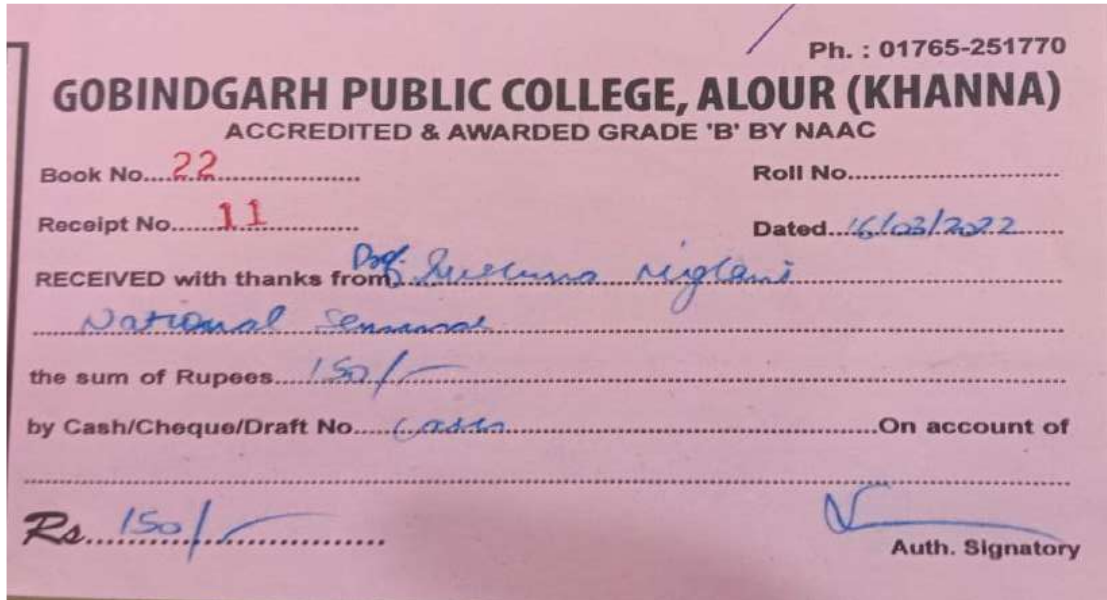 Ph. : 01765-251770
GOBINDGARH PUBLIC COLLEGE, ALOUR (KHANNA)
ACCREDITED & AWARDED GRADE 'B' BY NAAC
Book No....22.................... Roll No...........................
Receipt No......11.............. Dated...16/03/2022......
RECEIVED with thanks from Prof. Niglani
National Seminar
the sum of Rupees....150/-
by Cash/Cheque/Draft No.....Cash.....On account of
Rs....150/-
Auth. Signatory